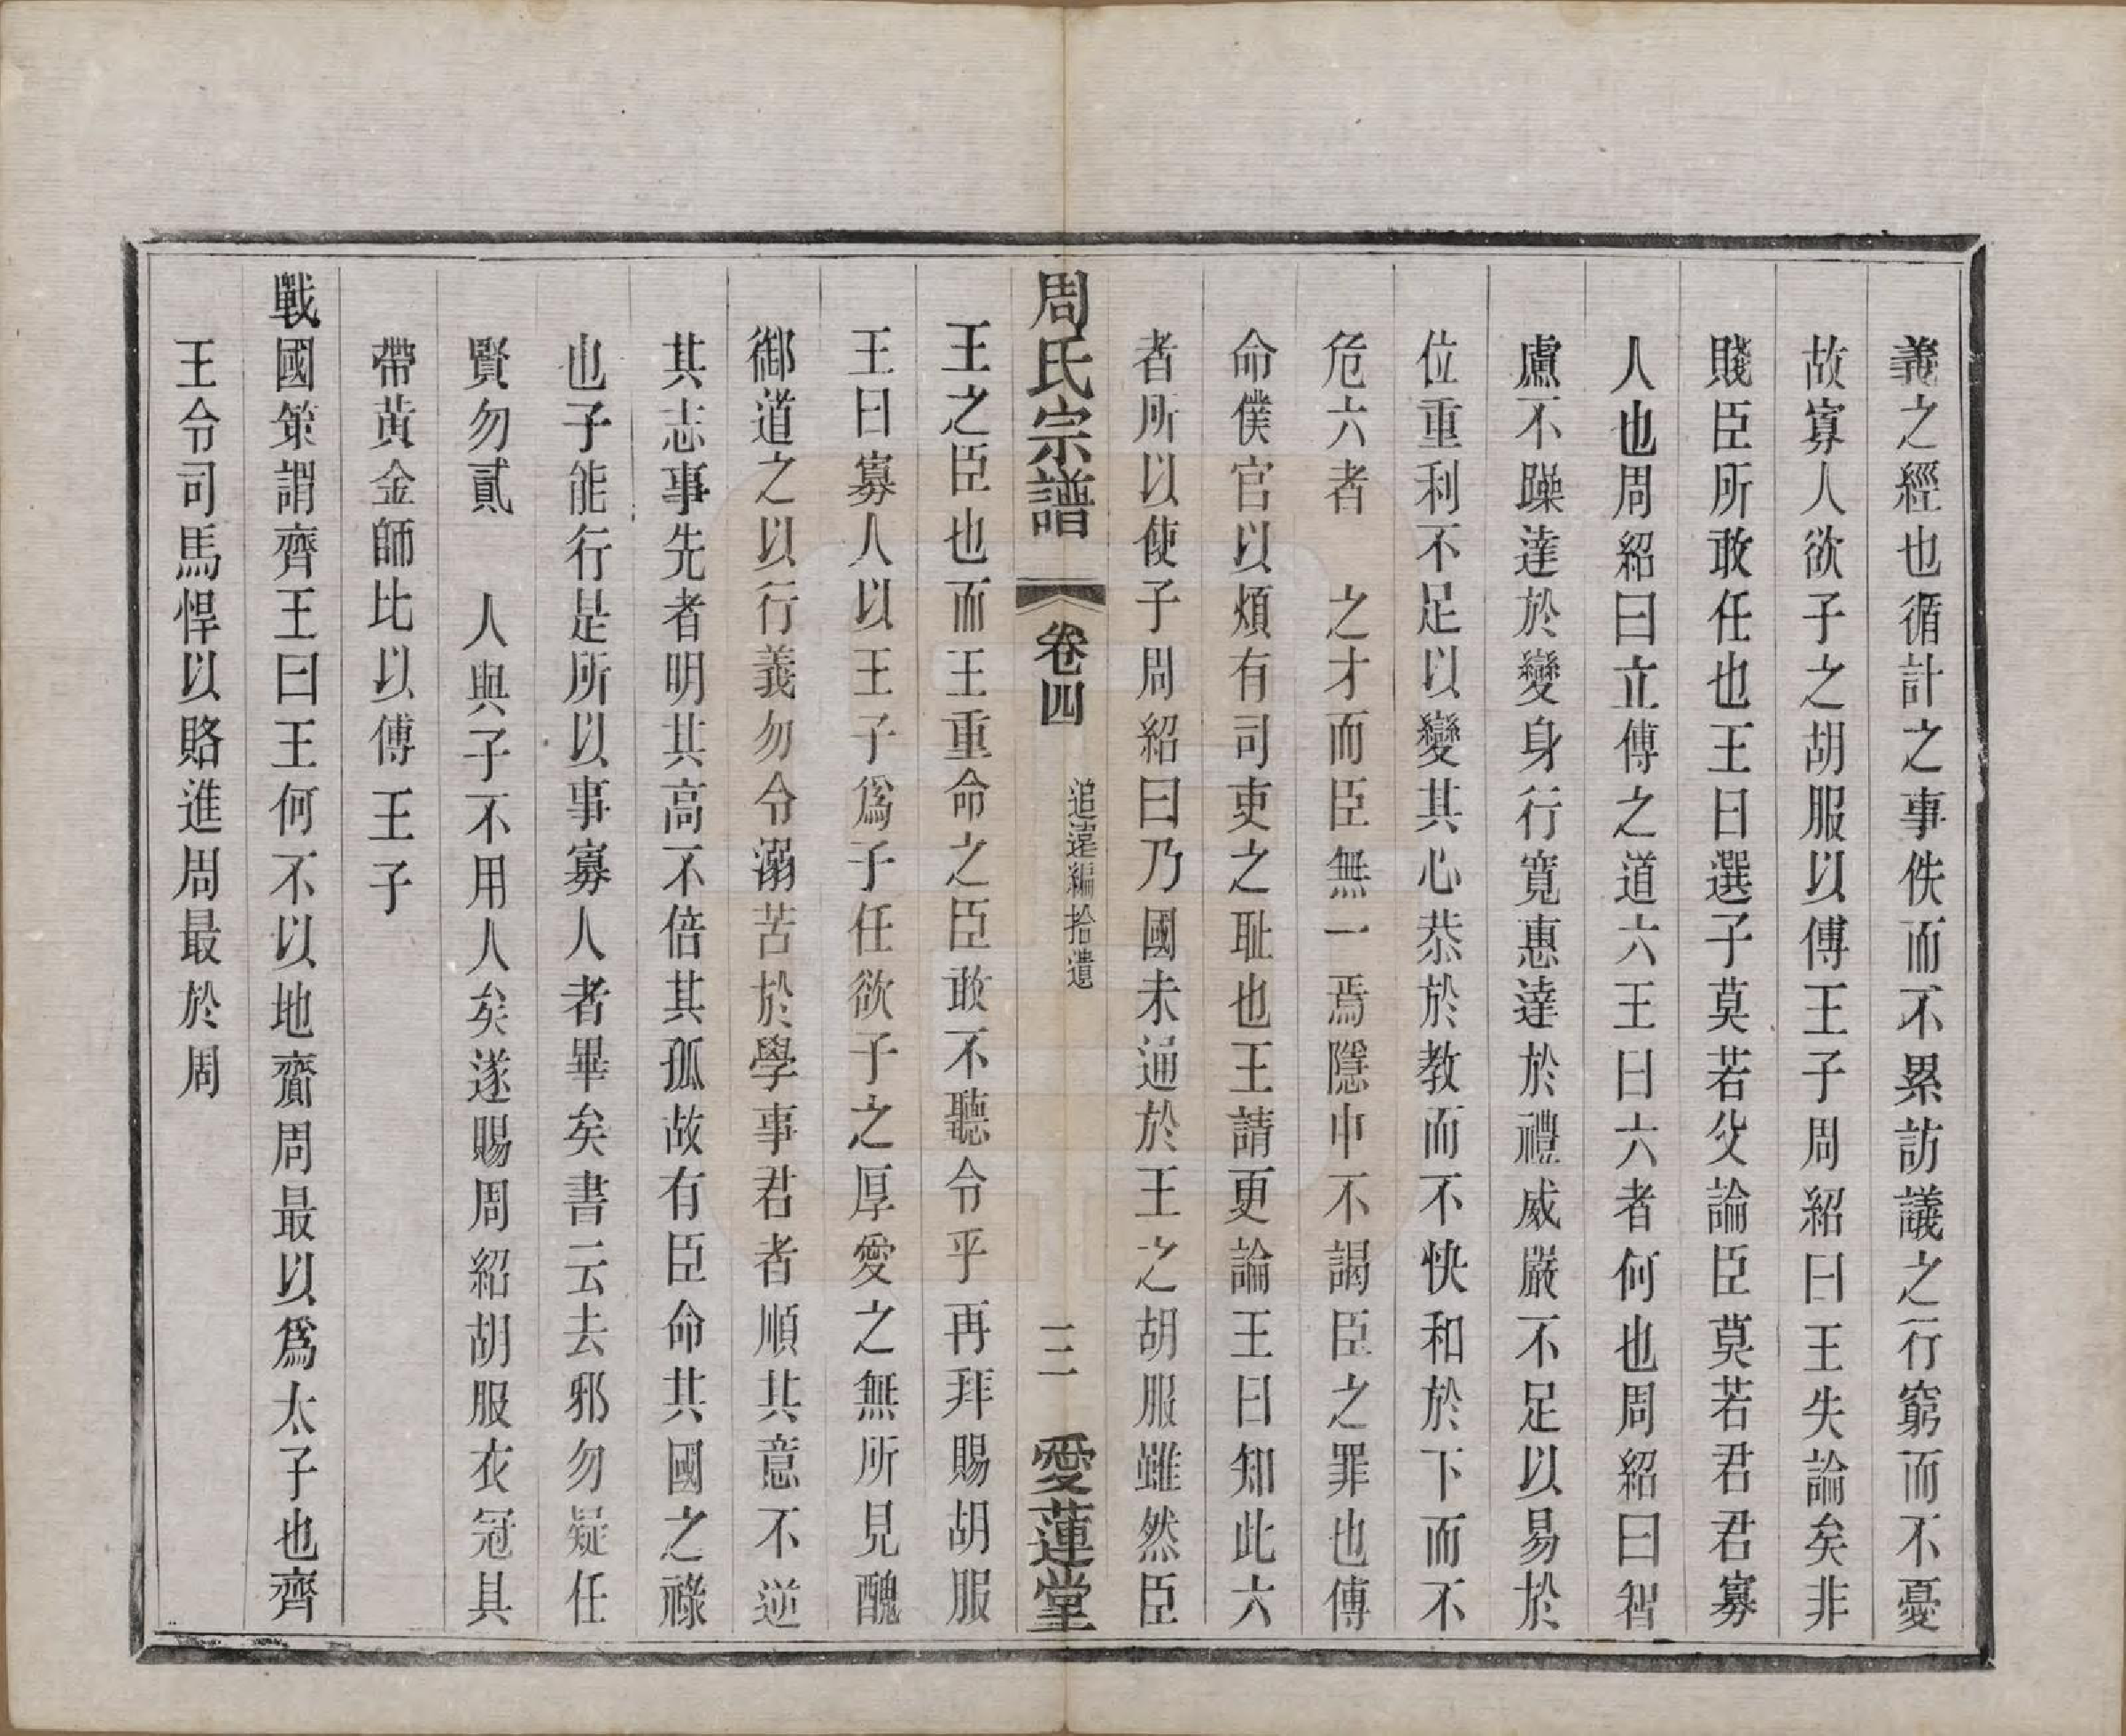 義之經也循計之事佚而不累訪議之行窮而不憂
故寡人欲子之胡服以傅王子周紹曰王失論矣非
賤臣所敢任也王曰選子莫若父論臣莫若君君寡
人也周紹曰立傅之道六王曰六者何也周紹曰智
慮不躁達於變身行寬惠達於禮威嚴不足以易於
位重利不足以變其心恭於教而不快和於下而不
危六者　之才而臣無一焉隱中不謁臣之罪也傅
命僕官以煩有司吏之耻也王請更論王曰知此六
者所以使子周紹曰乃國未通於王之胡服雖然臣
周氏宗譜　卷四　追遠編拾遺　三　愛蓮堂
王之臣也而王重命之臣敢不聽令乎再拜賜胡服
王曰寡人以王子爲子任欲子之厚愛之無所見醜
御道之以行義勿令溺苦於學事君者順其意不逆
其志事先者明其高不倍其孤故有臣命其國之祿
也子能行是所以事寡人者畢矣書云去邪勿疑任
賢勿貳　人與子不用人矣遂賜周紹胡服衣冠具
帶黃金師比以傅王子
戰國策謂齊王曰王何不以地齎周最以爲太子也齊
王令司馬悍以賂進周最於周